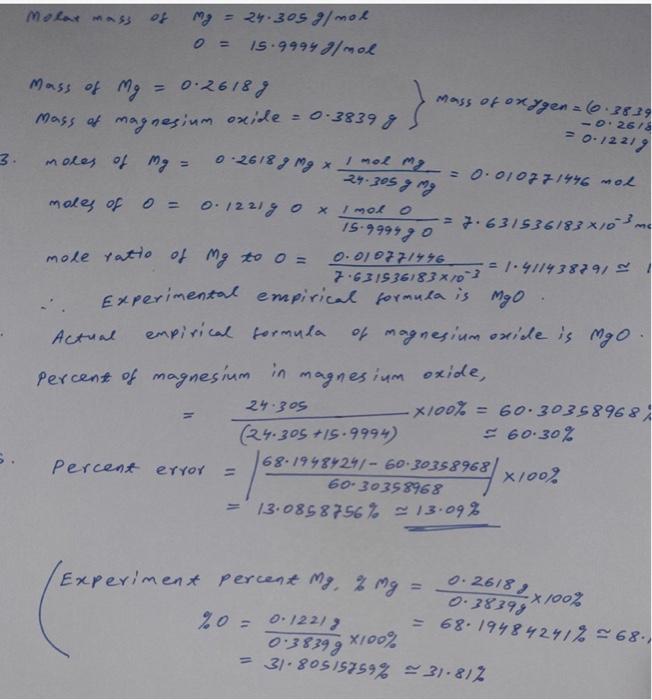 Molar mass of Mg = 24.305 g/mol
O = 15.9994 g/mol
Mass of Mg = 0.2618 g
Mass of magnesium oxide = 0.3839 g } Mass of oxygen = (0.3839
- 0.2618
= 0.1221 g
3. moles of Mg = 0.2618 g Mg × 1 mol Mg / 24.305 g Mg = 0.010771446 mol
moles of O = 0.1221 g O × 1 mol O / 15.9994 g O = 7.631536183 × 10⁻³ mo
mole ratio of Mg to O = 0.010771446 / 7.631536183 × 10⁻³ = 1.411438791 ≃ 1
∴ Experimental empirical formula is MgO.
Actual empirical formula of magnesium oxide is MgO.
Percent of magnesium in magnesium oxide,
= 24.305 / (24.305 + 15.9994) × 100% = 60.30358968%
≃ 60.30%
Percent error = | 68.19484241 - 60.30358968 / 60.30358968 | × 100%
= 13.0858756% ≃ 13.09%
(Experiment percent Mg, % Mg = 0.2618 g / 0.3839 g × 100%
= 68.19484241% ≃ 68.1
% O = 0.1221 g / 0.3839 g × 100%
= 31.80515759% ≃ 31.81%